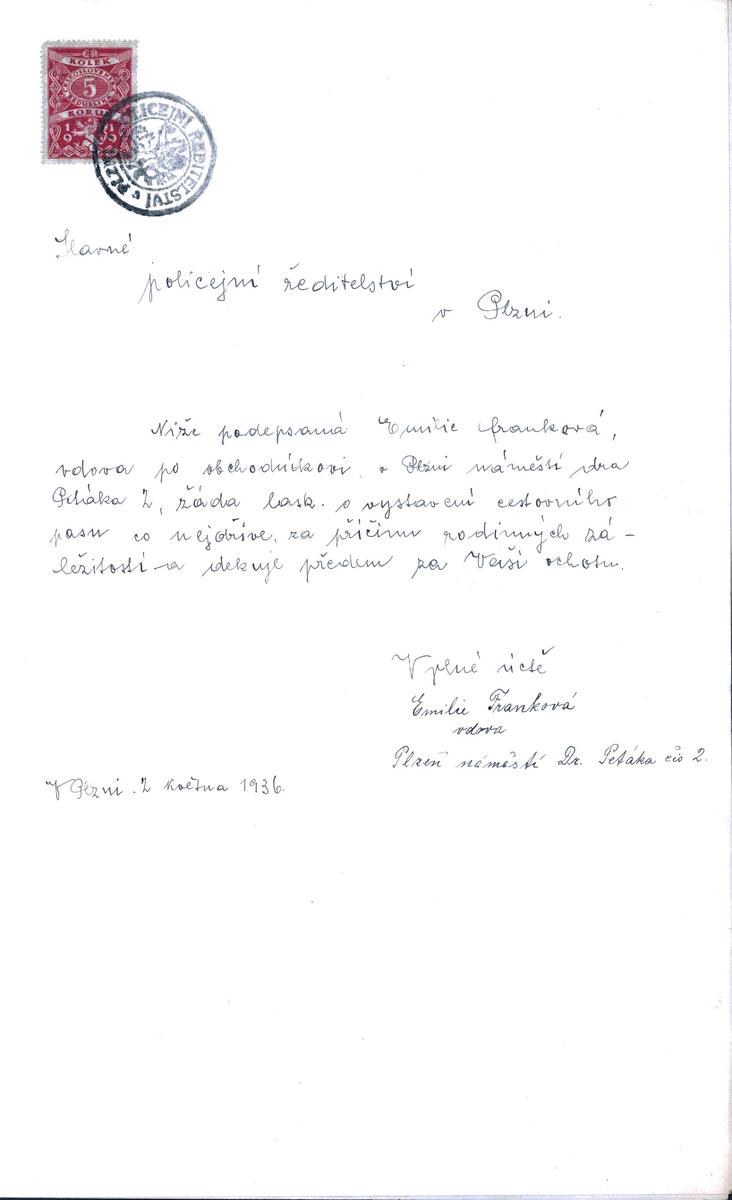 ČR
KOLEK
ČESKOSLOVENSKÁ
5
KORUN
19 35
POLICEJNÍ ŘEDITELSTVÍ v PLZNI
Slavné
policejní ředitelství
v Plzni.
Níže podepsaná Emilie Franková,
vdova po obchodníkovi, v Plzni náměstí dra
Petáka 2, žáda lask. o vystavení cestovního
pasu co nejdříve, za příčinu rodinných zá-
ležitostí a dekuje předem za Vaší ochotu.
V plné úctě
Emilie Franková
vdova
Plzeň náměstí Dr. Petáka čis 2.
V Plzni. 2 května 1936.